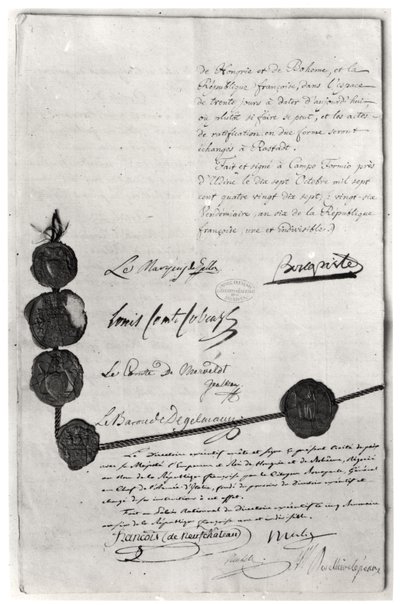 de Hongrie et de Boheme, et la
République françoise, dans l'espace
de trente jours à dater d'aujourd'hui
ou plutôt si faire se peut, et les actes
de ratification en due forme seront
échangés à Rastadt.
Fait et signé à Campo Formio près
d'Udine le dix sept Octobre mil sept
cent quatre vingt dix sept; vingt-six
Vendemiaire, an six de la République
françoise une et indivisible.
Le Marquis de Gallo
Bonaparte
Louis Comte Cobenzl
Le Comte De Merveldt
Le Baron de Degelmann
Le Directoire exécutif arrête et signe le présent traité de paix
avec sa Majesté l'Empereur et Roi de Hongrie et de Bohème, négocié
au nom de la République française par le Citoyen Bonaparte, Général
en Chef de l'Armée d'Italie, fondé de pouvoirs du Directoire exécutif et
chargé de ses instructions à cet effet.
Fait au Palais National du Directoire exécutif le cinq Brumaire
an six de la République française une et indivisible.
François (de neufchâteau)
Merlin